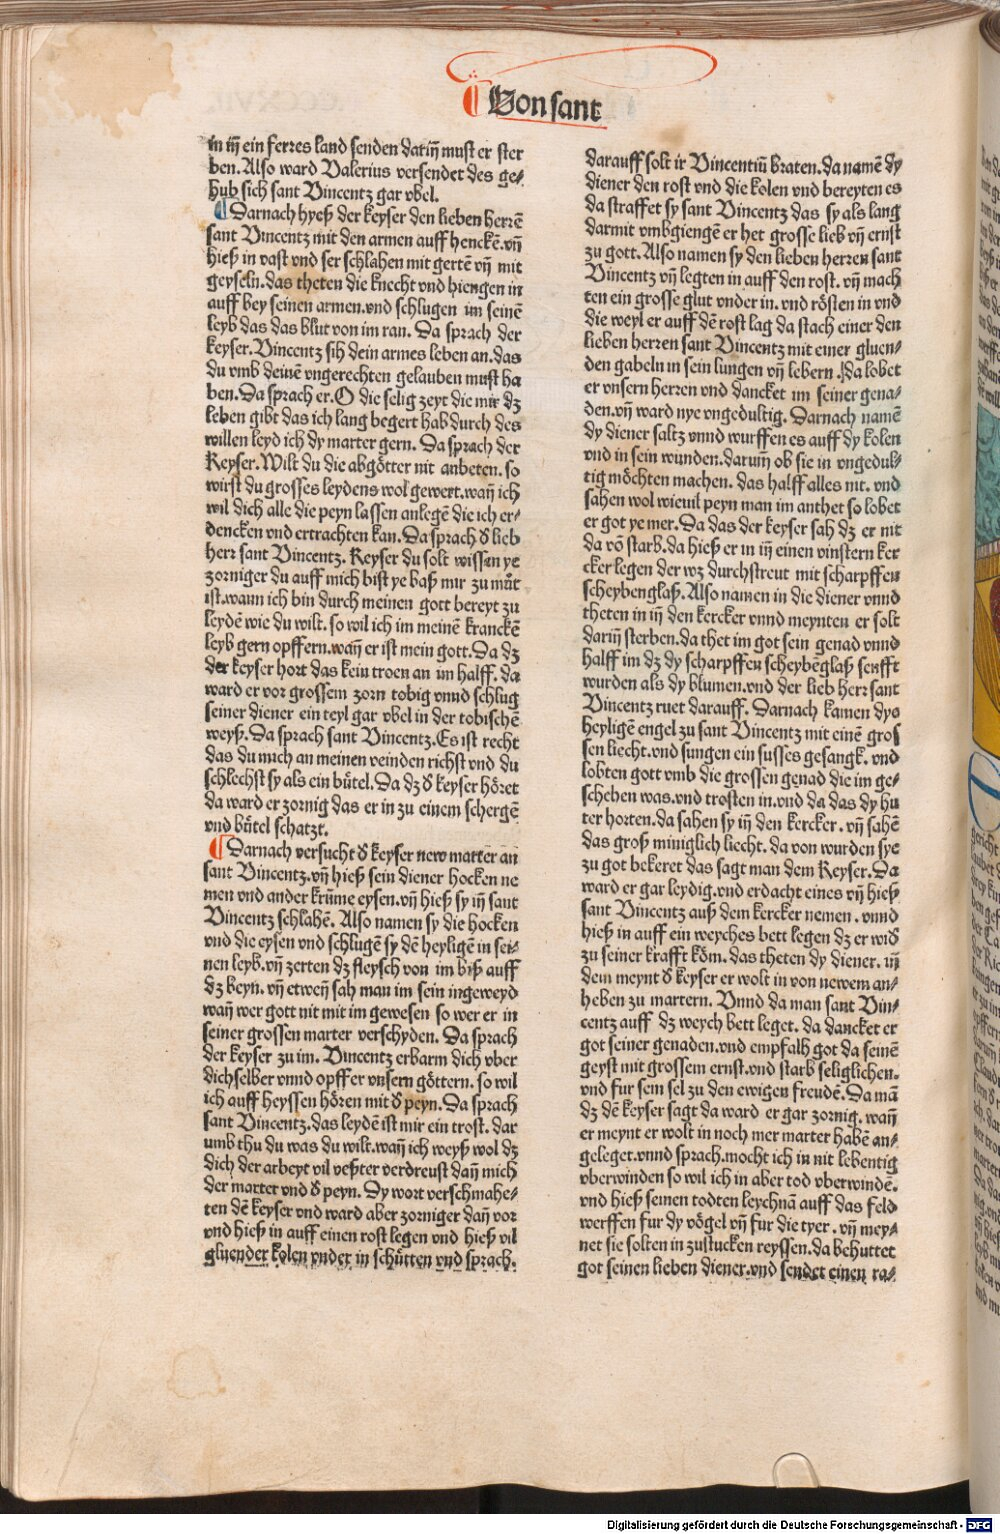 Von sant
in iñ ein ferres land senden dariñ must er ster
ben. Also ward Valerius versendet des ge⸗
hub sich sant Vincentz gar vbel.
Darnach hyeß der keyser den lieben herrē
sant Vincentz mit den armen auff henckē. vñ
hieß in vast vnd ser schlahen mit gertē vñ mit
geyseln. das theten die knecht vnd hiengen in
auff bey seinen armen. vnd schlugen im seinē
leyb das das blut von im ran. Da sprach der
keyser. Vincentz sih dein armes leben an. das
du vmb deinē vngerechten gelauben must ha
ben. Da sprach er. O die selig zeyt die mir dz
leben gibt das ich lang begert hab durch des
willen leyd ich dy marter gern. Da sprach der
Keyser. Wilt du die abgötter nit anbeten. so
wirst du grosses leydens wol gewert. wañ ich
wil dich alle die peyn lassen anlegē die ich er⸗
dencken vnd ertrachten kan. Da sprach ð lieb
herr sant Vincentz. Keyser du solt wissen ye
zorniger du auff mich bist ye baß mir zu můt
ist. wann ich bin durch meinen gott bereyt zu
leydē wie du wilt. so wil ich im meinē kranckē
leyb gern opffern. wañ er ist mein gott. Da dz
der keyser hort das kein troen an im halff. da
ward er vor grossem zorn tobig vnnd schlug
seiner diener ein teyl gar vbel in der tobischē
weyß. Da sprach sant Vincentz. Es ist recht
das du mich an meinen veinden richst vnd du
schlechst sy als ein bütel. Da dz ð keyser höret
da ward er zornig das er in zu einem schergē
vnd bütel schatzt.
Darnach versucht ð keyser new marter an
sant Vincentz. vñ hieß sein diener hocken ne
men vnd ander krūme eysen. vñ hieß sy iñ sant
Vincentz schlahē. Also namen sy die hocken
vnd die eysen vnd schlugē sy dē heyligē in sei⸗
nen leyb. vñ zerten dz fleysch von im biß auff
dz beyn. vñ etweñ sah man im sein ingeweyd
wañ wer gott nit mit im gewesen so wer er in
seiner grossen marter verschyden. Da sprach
der keyser zu im. Vincentz erbarm dich vber
dich selber vnnd opffer vnsern göttern. so wil
ich auff heyssen hören mit ð peyn. Da sprach
sant Vincentz. das leydē ist mir ein trost. dar
umb thu du was du wilt. wañ ich weyß wol dz
dich der arbeyt vil veßter verdreust dañ mich
der marter vnd ð peyn. Dy wort verschmahe⸗
ten dē keyser vnd ward aber zorniger dañ vor
vnd hieß in auff einen rost legen vnd hieß vil
gluender kolen vnder in schütten vnd sprach.
darauff solt ir Vincentiū braten. da namē dy
diener den rost vnd die kolen vnd bereyten es
da straffet sy sant Vincentz das sy als lang
darmit vmbgiengē er het grosse lieb vñ ernst
zu gott. Also namen sy den lieben herren sant
Vincentz vñ legten in auff den rost. vñ mach
ten ein grosse glut vnder in. vnd rösten in vnd
die weyl er auff dē rost lag da stach einer den
lieben herren sant Vincentz mit einer gluen⸗
den gabeln in sein lungen vñ lebern. da lobet
er vnsern herren vnd dancket im seiner gena⸗
den. vñ ward nye vngedultig. Darnach namē
dy diener saltz vnnd wurffen es auff dy kolen
vnd in sein wunden. darumb ob sie in vngedul⸗
tig möchten machen. das halff alles nit. vnd
sahen wol wieuil peyn man im anthet so lobet
er got ye mer. Da das der keyser sah dz er nit
da vō starb. da hieß er in iñ einen vinstern ker
cker legen der wz durchstreut mit scharpffen
scheybenglaß. Also namen in die diener vnnd
theten in iñ den kercker vnnd meynten er solt
dariñ sterben. da thet im got sein genad vnnd
halff im dz dy scharpffen scheybēglaß senfft
wurden als dy blumen. vnd der lieb herr sant
Vincentz ruet darauff. Darnach kamen dye
heyligē engel zu sant Vincentz mit einē gros
sen liecht. vnd sungen ein susses gesangk. vnd
lobten gott vmb die grossen genad die im ge⸗
schehen was. vnd trosten in. vnd da das dy hu
ter horten. da sahen sy iñ den kercker. vñ sahē
das groß miniglich liecht. da von wurden sye
zu got bekeret das sagt man dem Keyser. Da
ward er gar leydig. vnd erdacht eines vñ hieß
sant Vincentz auß dem kercker nemen. vnnd
hieß in auff ein weyches bett legen dz er wið
zu seiner krafft köm. das theten dy diener. iñ
dem meynt ð keyser er wolt in von newem an⸗
heben zu martern. Vnnd da man sant Vin⸗
centz auff dz weych bett leget. da dancket er
got seiner genaden. vnd empfalh got da seinē
geyst mit grossem ernst. vnd starb seliglichen.
vnd fur sem sel zu den ewigen freudē. Da mā
dz dē keyser sagt da ward er gar zornig. wañ
er meynt er wolt in noch mer marter habē an⸗
geleget. vnnd sprach. mocht ich in nit lebentig
vberwinden so wil ich in aber tod vberwindē.
vnd hieß seinen todten leychnā auff das feld
werffen fur dy vögel vñ fur die tyer. vñ mey⸗
net sie solten in zustucken reyssen. da behuttet
got seinen lieben diener. vnd sendet einen ra⸗
Digitalisierung gefördert durch die Deutsche Forschungsgemeinschaft - DFG